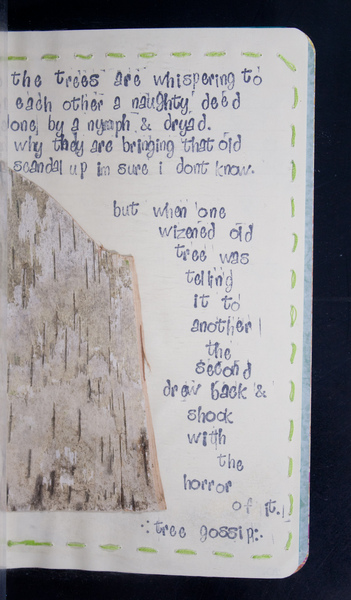 the trees are whispering to
each other a naughty deed
done by a nymph & dryad.
why they are bringing that old
scandal up im sure i dont know.
but when one
wizened old
tree was
telling
it to
another
the
second
drew back &
shook
with
the
horror
of it.
tree gossip